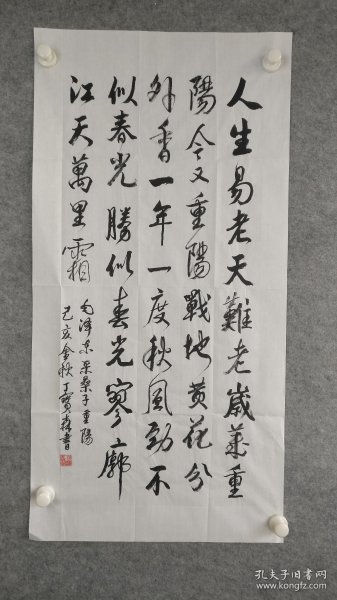 人生易老天難老歲歲重
陽今又重陽戰地黄花分
外香一年一度秋風勁不
似春光勝似春光寥廓
江天萬里霜
毛澤东采桑子重陽
己亥金秋丁寶森書
孔夫子旧书网